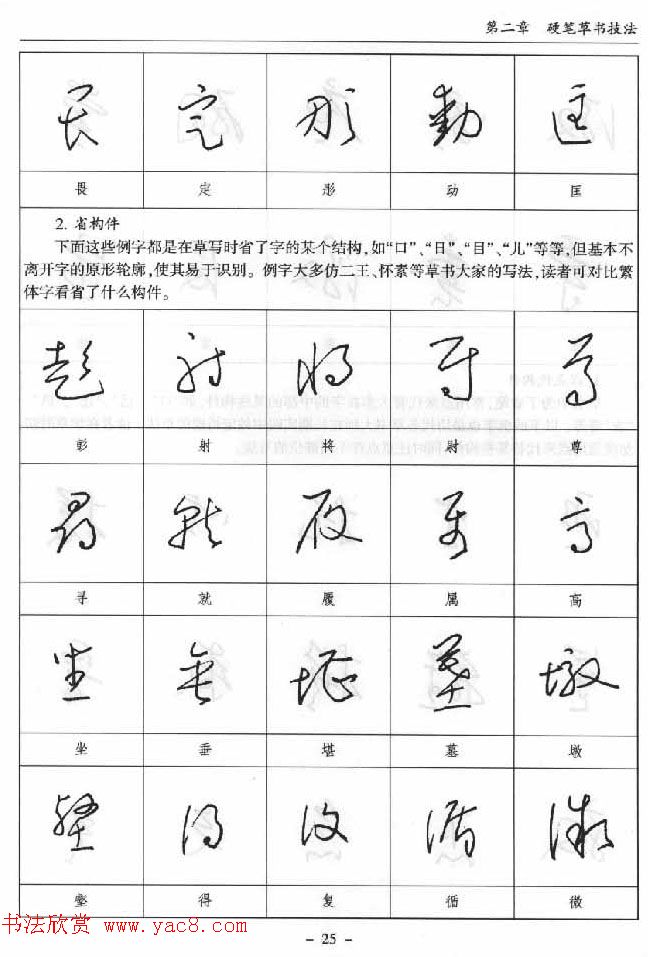 第二章 硬笔草书技法
畏 定 形 动 匡
2. 省构件
下面这些例字都是在草写时省了字的某个结构,如“口”、“日”、“目”、“儿”等等,但基本不
离开字的原形轮廓,使其易于识别。例字大多仿二王、怀素等草书大家的写法,读者可对比繁
体字看省了什么构件。
彭 射 将 尉 尊
寻 就 履 属 高
坐 垂 堪 墓 墩
壑 得 复 循 微
书法欣赏 www.yac8.com
- 25 -